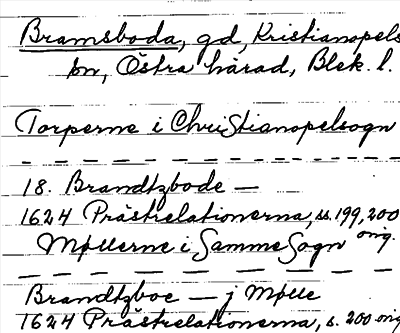 Bramsboda, gd, Kristianopels
sn, Östra härad, Blek. l.
Torperne i Christianopelsogn
18. Brandtzbode —
1624 Prästrelationerna, ss. 199, 200
orig.
Møllerne i Samme Sogn
Brandtzboe — j Mølle
1624 Prästrelationerna, s. 200 orig